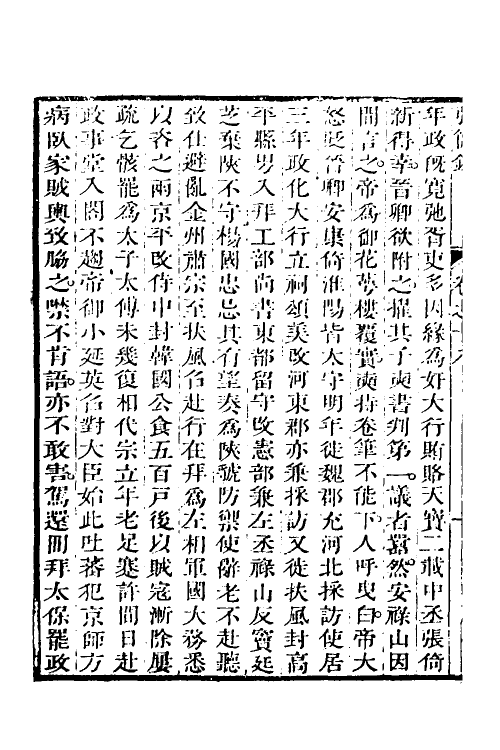 年政旣寬弛胥吏多因緣爲奸大行賄賂天寶二載中丞張倚
新得幸晉卿欲附之擢其子奭書判第一議者囂然安祿山因
間言之帝爲御花萼樓覆實奭持卷筆不能下人呼曳白帝大
怒貶晉卿安康倚淮陽皆太守明年徙魏郡充河北採訪使居
三年政化大行立祠頌美改河東郡亦兼採訪又徙扶風封高
平縣男入拜工部尚書東都留守改憲部兼左丞祿山反竇廷
芝棄陝不守楊國忠忌其有望奏爲陝虢防禦使辭老不赴聽
致仕避亂金州肅宗至扶風召赴行在拜爲左相軍國大務悉
以咨之兩京平改侍中封韓國公食五百戶後以賊寇漸除屢
疏乞骸罷爲太子太傅未幾復相代宗立年老足蹇許間日赴
政事堂入閤不趨帝御小延英召對大臣始此吐蕃犯京師方
病臥家賊輿致脇之噤不肯語亦不敢害駕還冊拜太保罷政